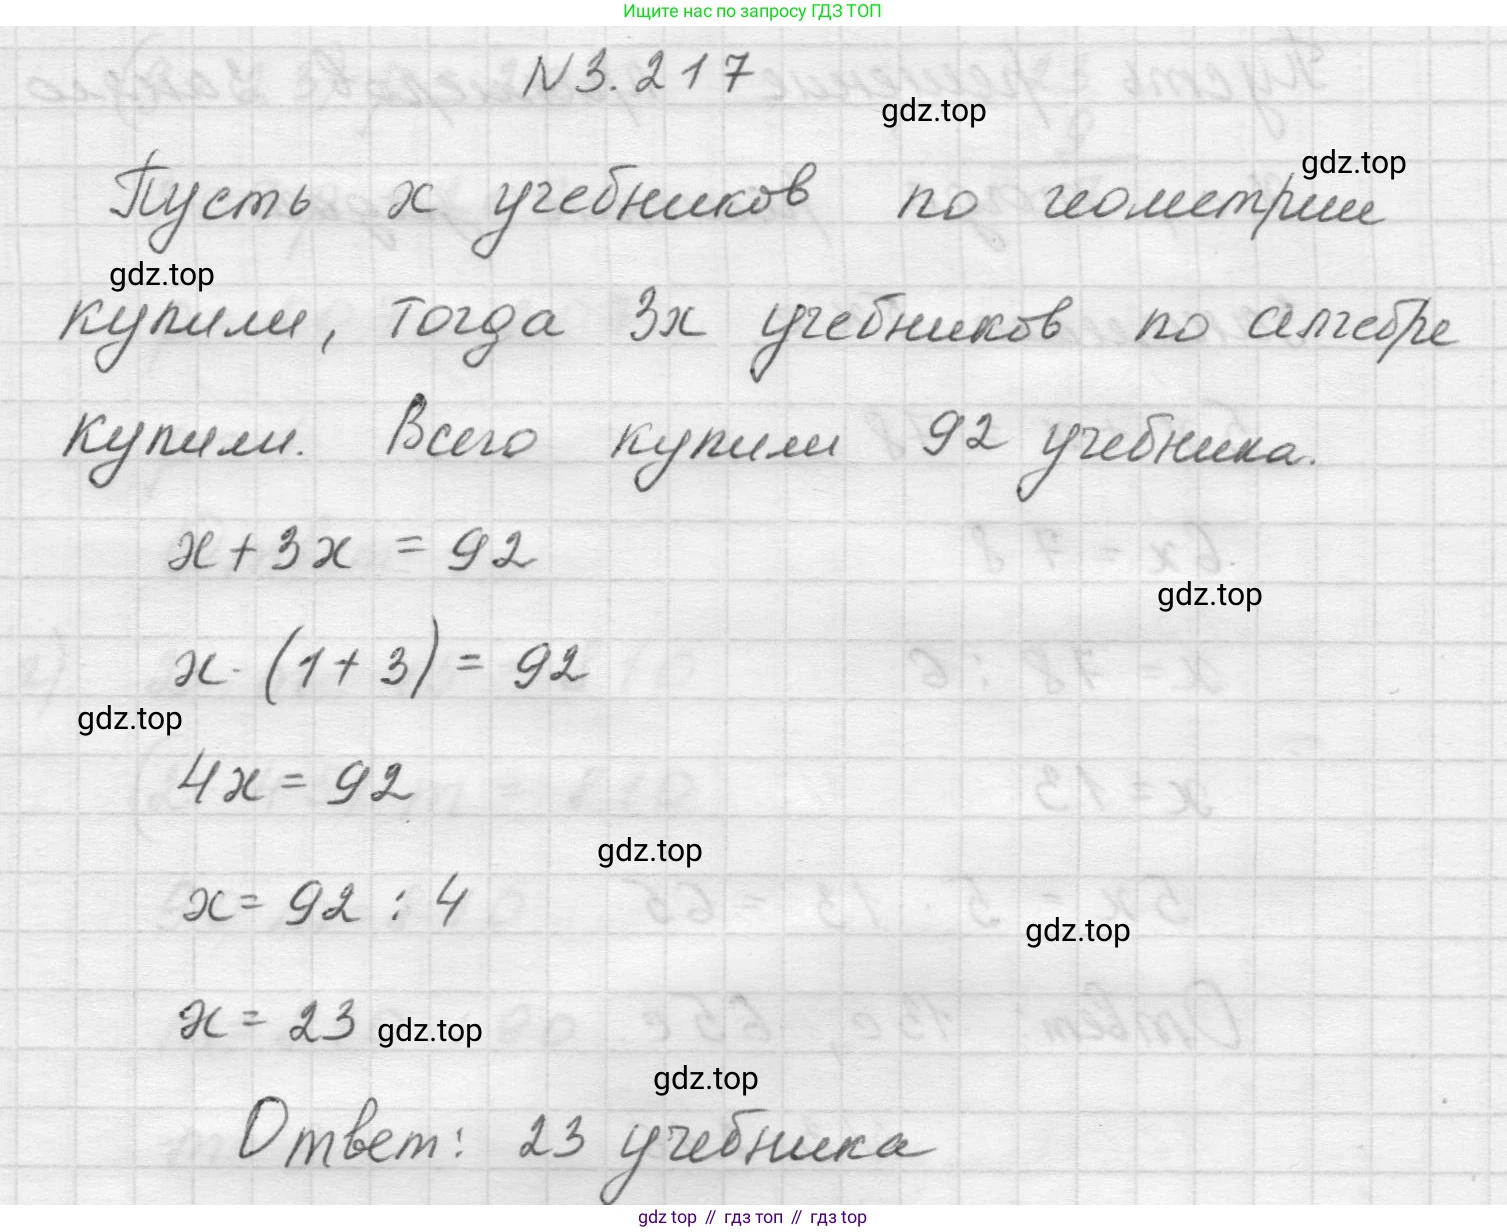 Ищите нас по запросу ГДЗ ТОП
N 3.217
gdz.top
gdz.top
Пусть x учебников по геометрии
gdz.top
купили, тогда 3x учебников по алгебре
купили. Всего купили 92 учебника.
x + 3x = 92
gdz.top
x · (1 + 3) = 92
gdz.top
4x = 92
gdz.top
x = 92 : 4
gdz.top
x = 23
gdz.top
gdz.top
Ответ: 23 учебника
gdz top // гдз топ // гдз top